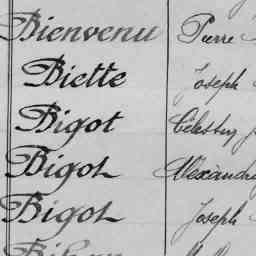 Bienvenu Pierre
Biette Joseph
Bigot Célestin
Bigot Alexandre
Bigot Joseph